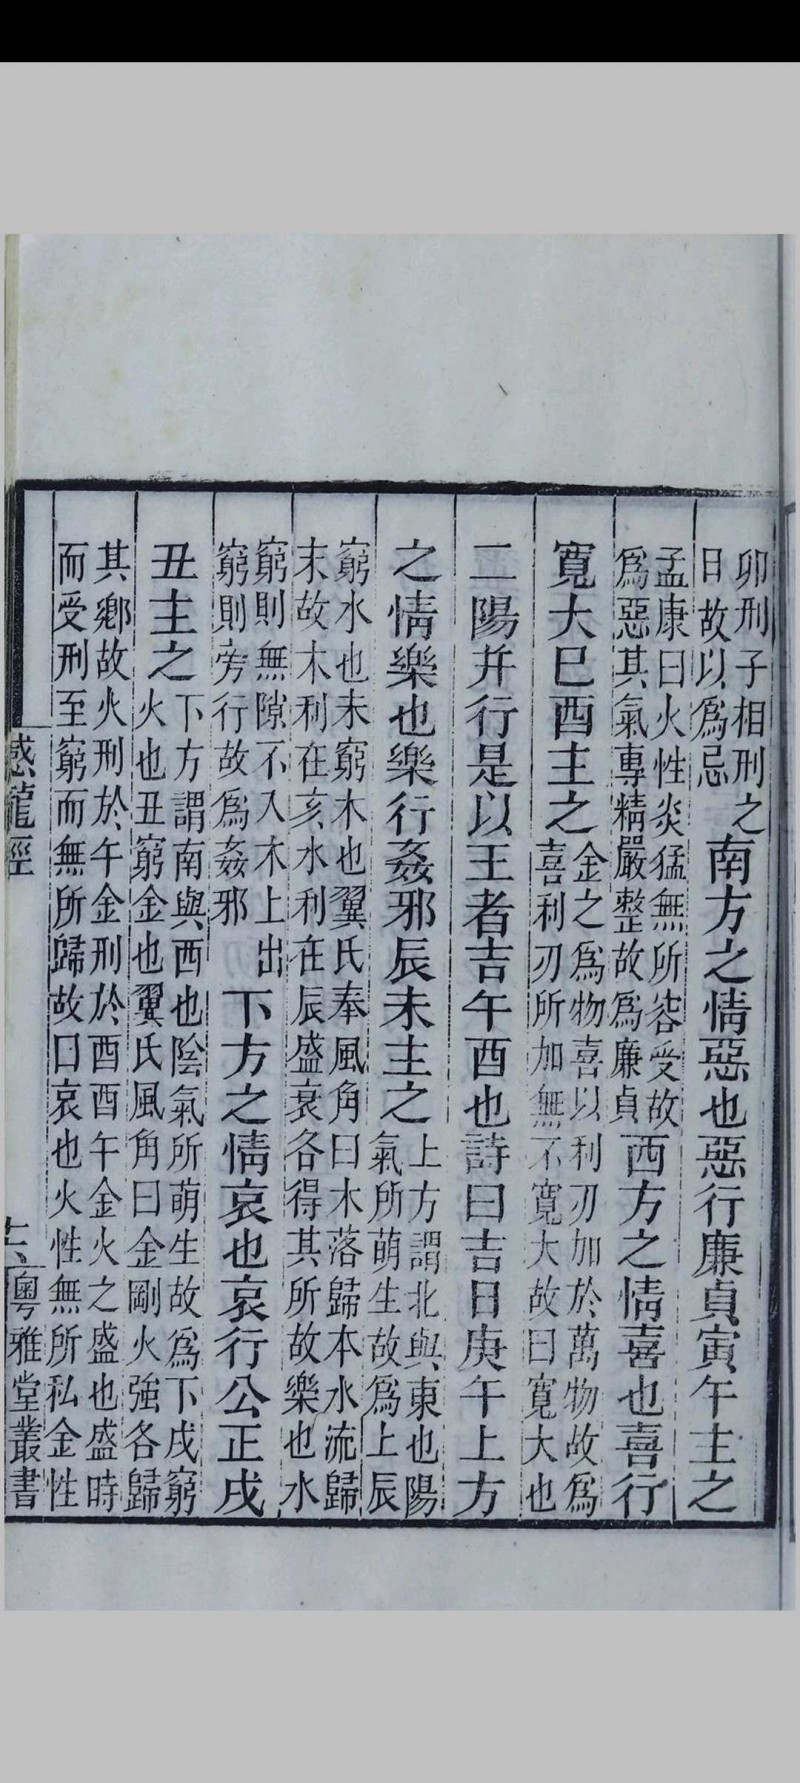 卯刑子相刑之
日故以爲忌
南方之情惡也惡行廉貞寅午主之
孟康曰火性炎猛無所容受故
爲惡其氣專精嚴整故爲廉貞
西方之情喜也喜行
寬大巳酉主之
金之爲物喜以利刃加於萬物故爲
喜利刃所加無不寬大故曰寬大也
二陽并行是以王者吉午酉也詩曰吉日庚午上方
之情樂也樂行姦邪辰未主之
上方謂北與東也陽
氣所萌生故爲上辰
窮水也未窮木也翼氏奉風角曰木落歸本水流歸
末故木利在亥水利在辰盛衰各得其所故樂也水
窮則無隙不入木上出
窮則旁行故爲姦邪
下方之情哀也哀行公正戌
丑主之
下方謂南與西也陰氣所萌生故爲下戌窮
火也丑窮金也翼氏風角曰金剛火強各歸
其鄉故火刑於午金刑於酉酉午金火之盛也盛時
而受刑至窮而無所歸故曰哀也火性無所私金性
龍經
粵雅堂叢書